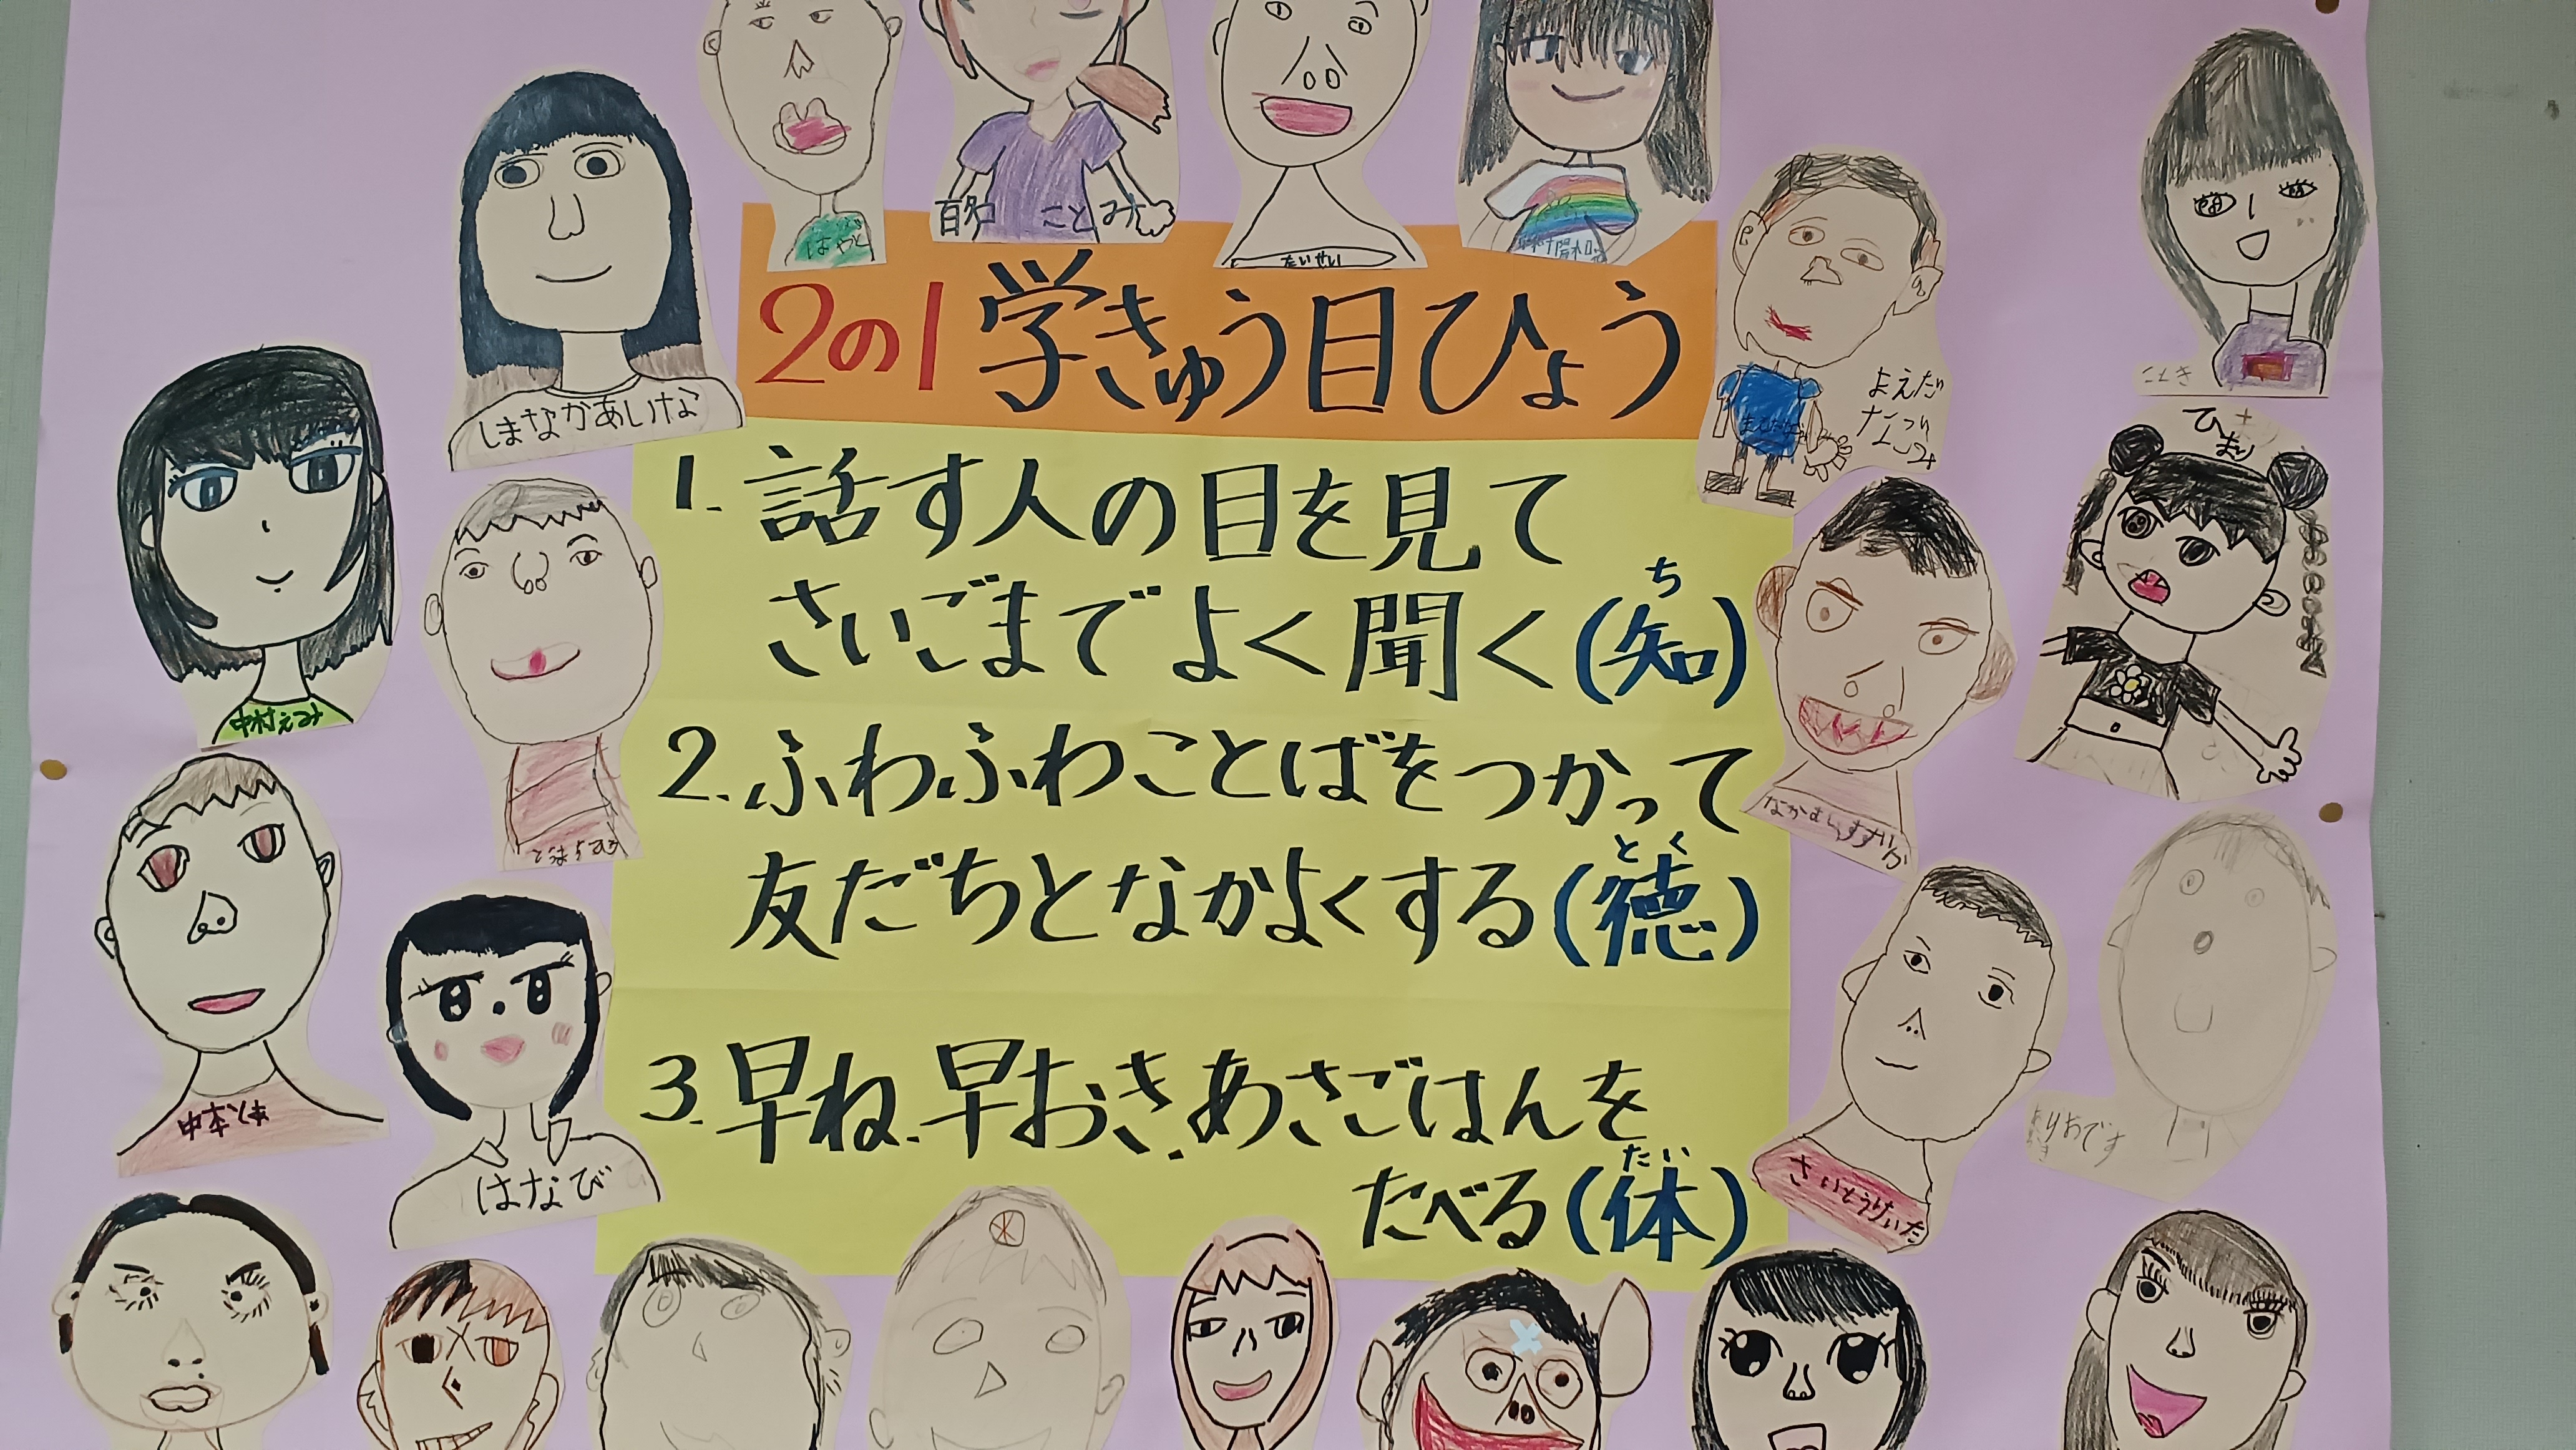 はやと
百名 ことみ
たいせい
2の1 学きゅう目ひょう
しまなかあいな
こてき
ひまり
1. 話す人の目を見て
さいごまでよく聞く(知)
ち
中村えみ
2. ふわふわことばをつかって
友だちとなかよくする(徳)
とく
なかむらすずか
中本
はなび
りおです
3. 早ね.早おき.あさごはんを
たべる(体)
たい
さいとうけいた